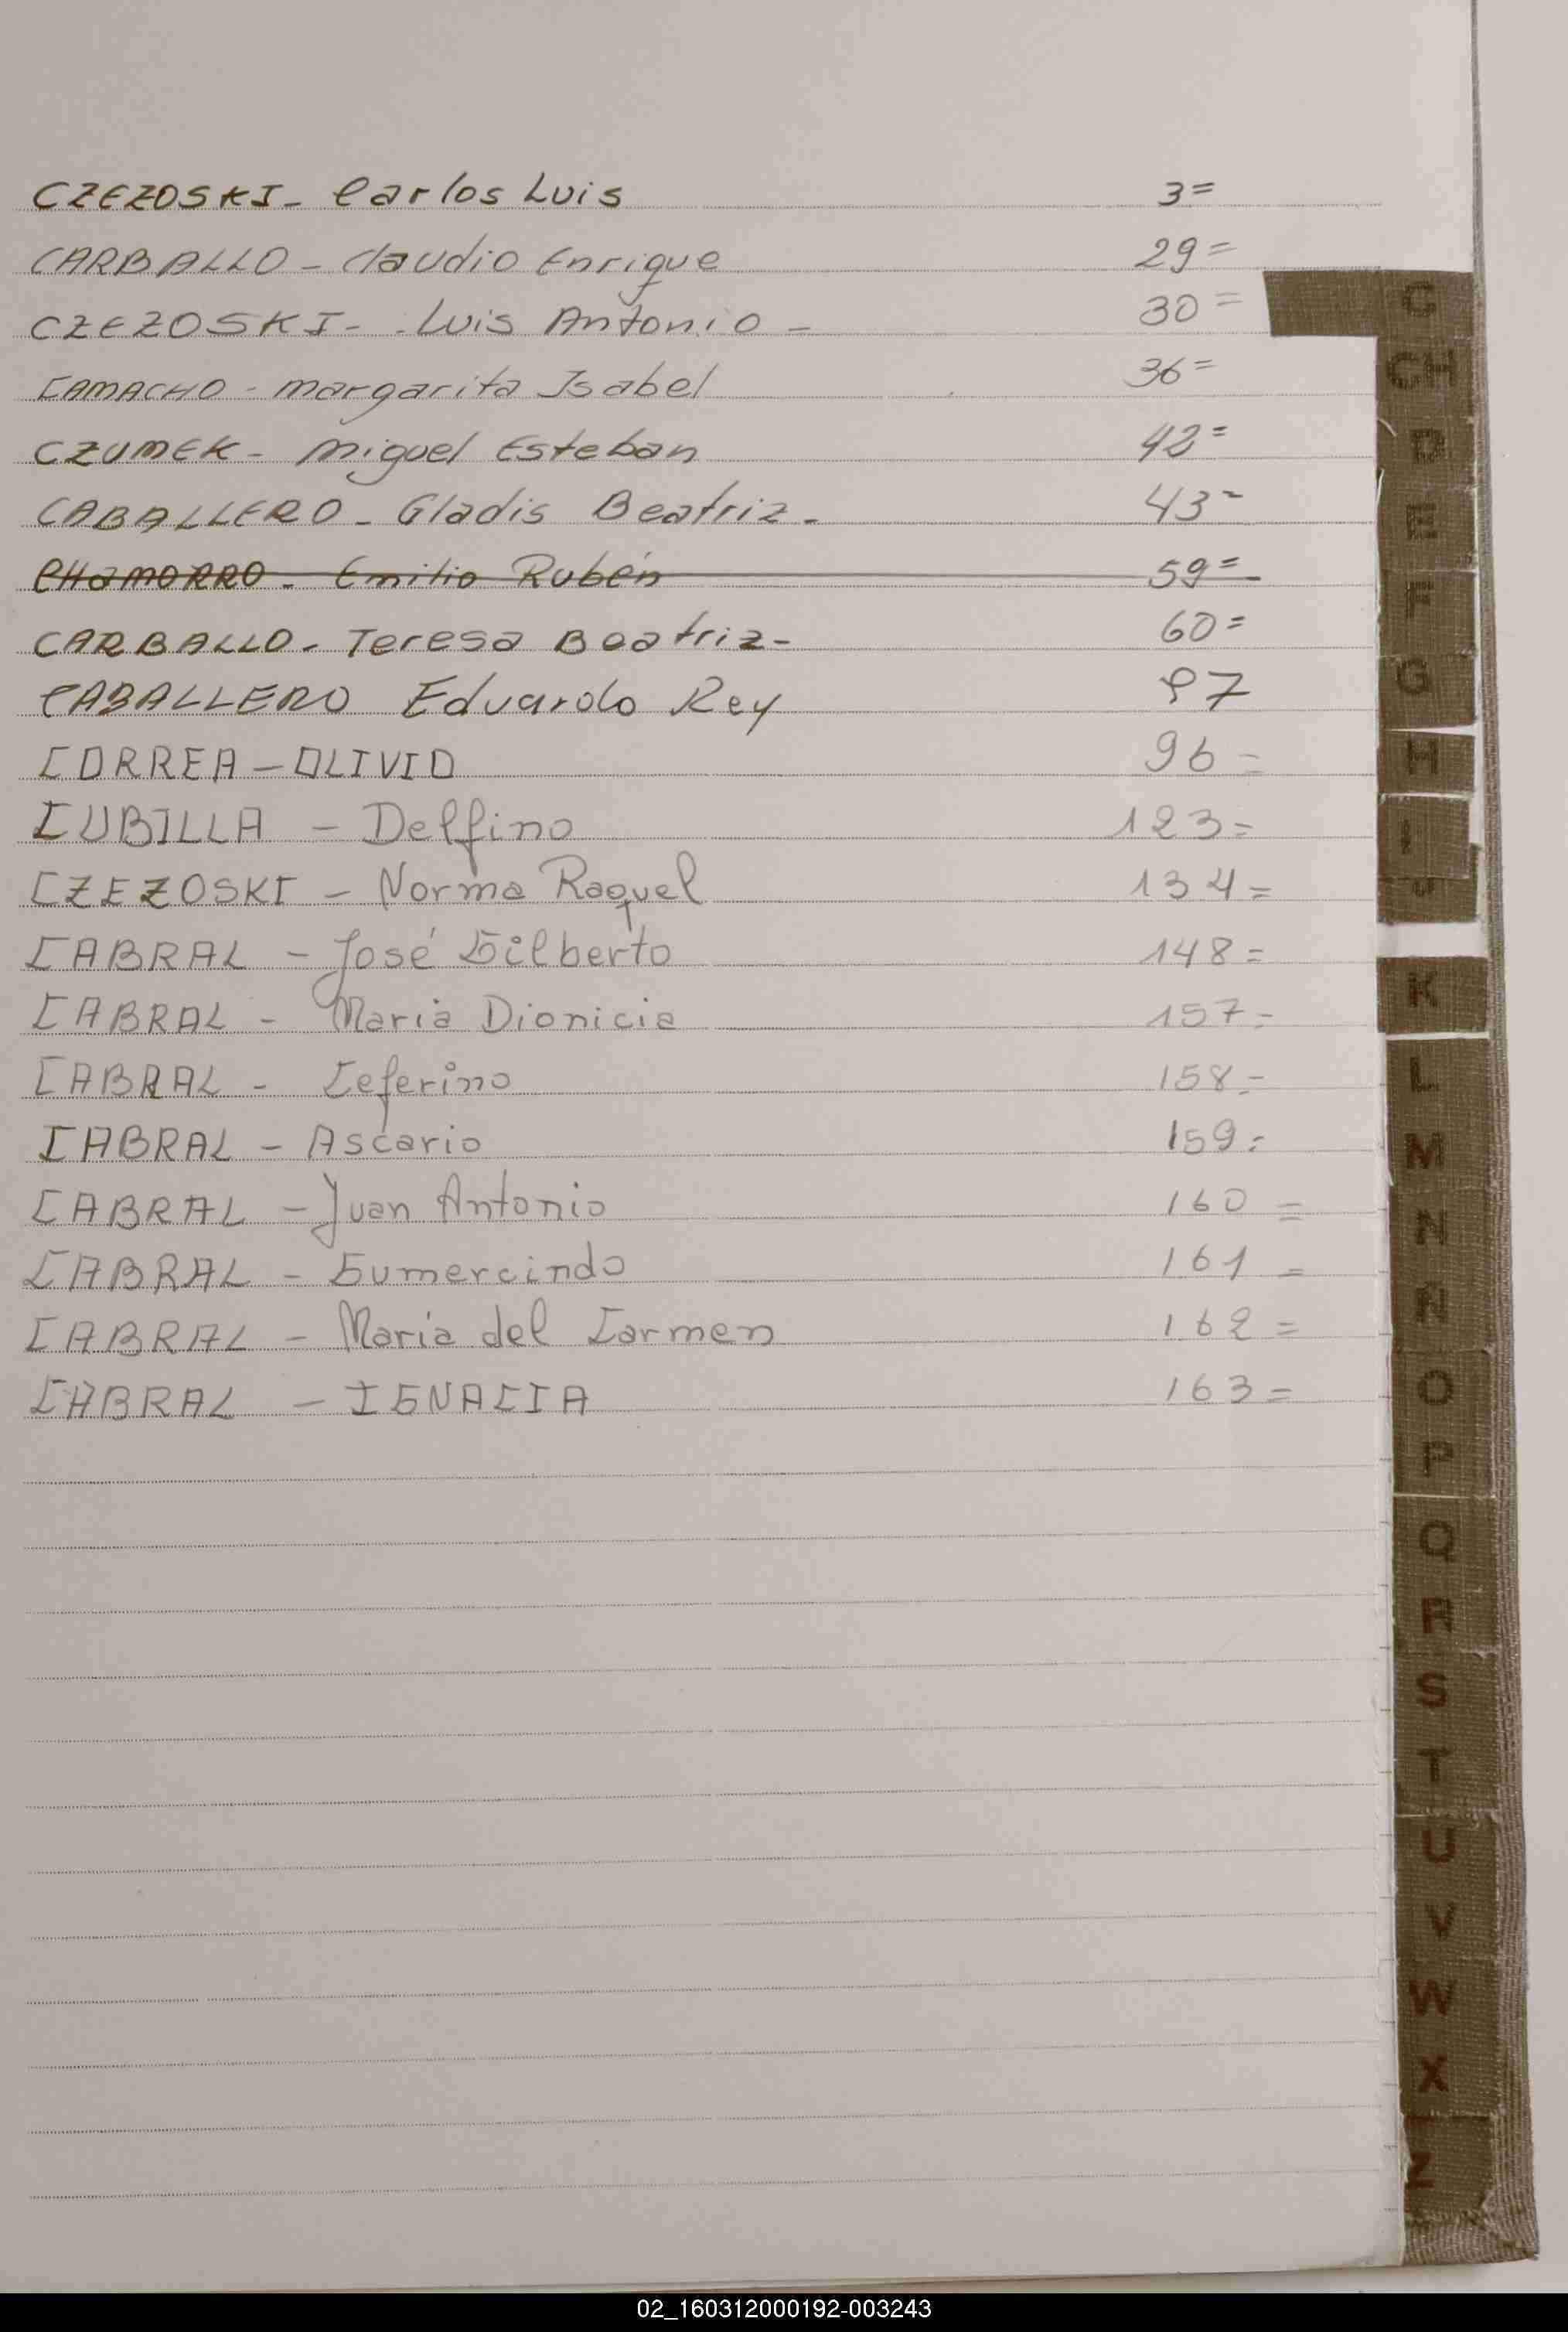 CZEZOSKI - Carlos Luis 3=
CARBALLO - Claudio Enrique 29=
CZEZOSKI - Luis Antonio - 30=
CAMACHO - Margarita Isabel 36=
CZUMEK - Miguel Esteban 42=
CABALLERO - Gladis Beatriz - 43=
CHAMORRO - Emilio Rubén 59=
CARBALLO - Teresa Beatriz - 60=
CABALLERO Eduardo Rey
CORREA - OLIVIO 96=
CUBILLA - Delfino 123=
CZEZOSKI - Norma Raquel 134=
CABRAL - José Gilberto 148=
CABRAL - Maria Dionicia 157=
CABRAL - Ceferino 158=
CABRAL - Ascario 159=
CABRAL - Juan Antonio 160=
CABRAL - Gumercindo 161=
CABRAL - Maria del Carmen 162=
CABRAL - IGNACIA 163=
C
CH
D
E
F
G
H
I
J
K
L
M
N
Ñ
O
P
Q
R
S
T
U
V
W
X
Z
02_160312000192-003243